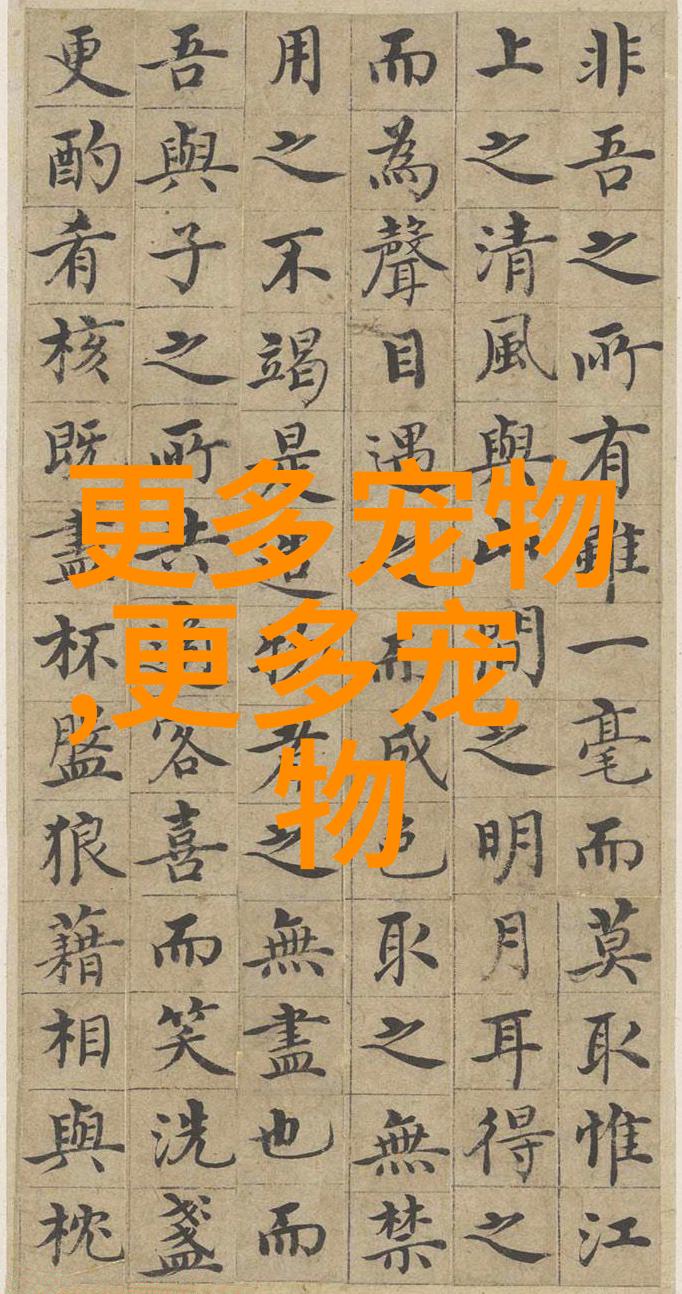 非吾之所有雖一毫而莫取惟江
上之清風與山間之明月耳得之
而為聲目遇之而成色取之無禁
用之不竭是造物者之無盡也而
吾與子之所共適客喜而笑洗盞
更酌肴核既盡杯盤狼藉相與枕
更多宠物
,更多宠
物